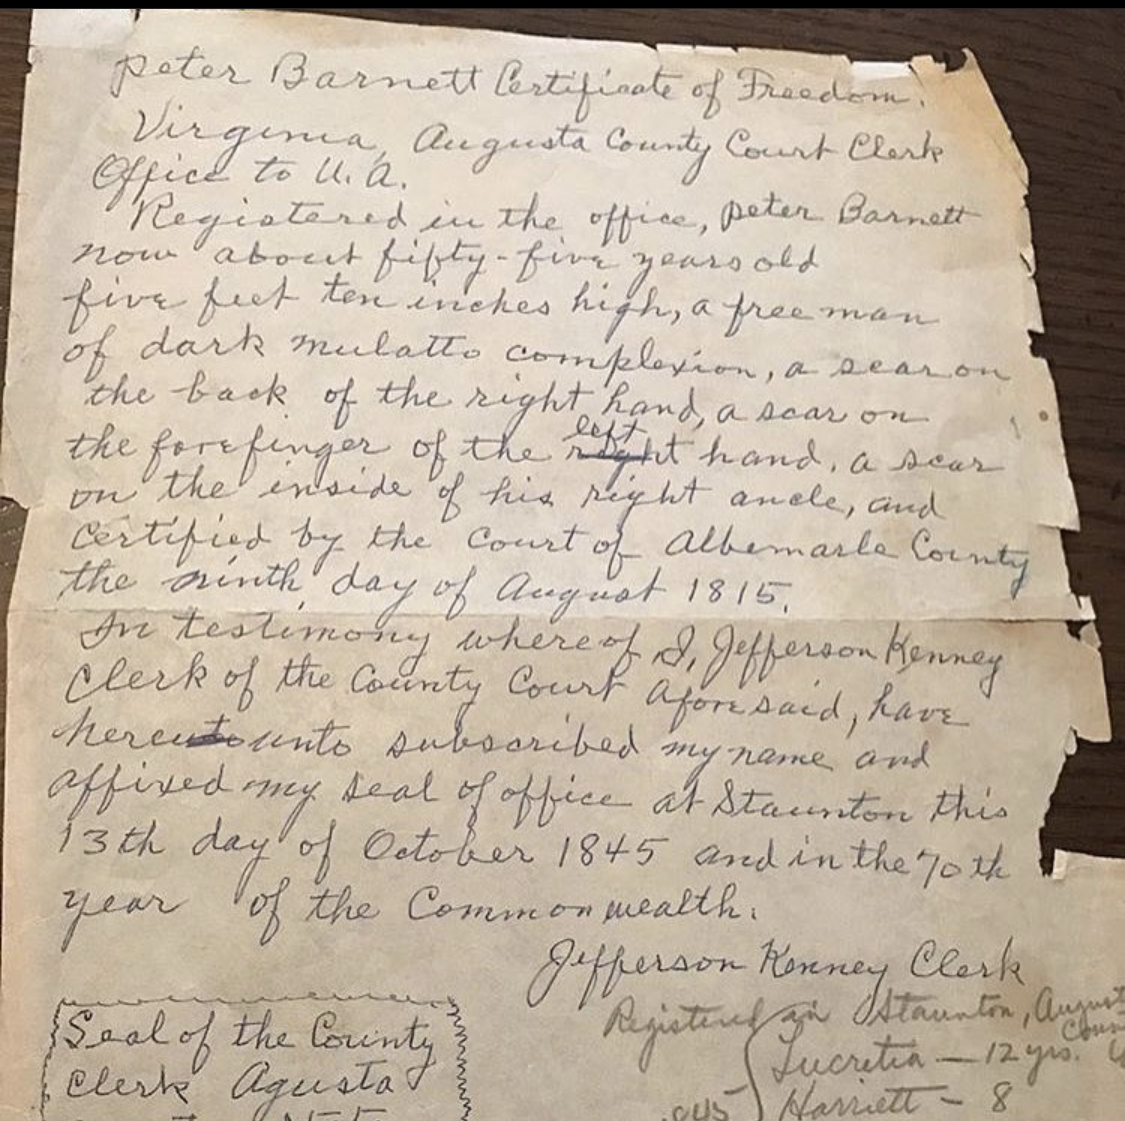 Peter Barnett Certificate of Freedom.
Virginia, Augusta County Court Clerk
Office to U.A.
Registered in the office, Peter Barnett
now about fifty-five years old
five feet ten inches high, a free man
of dark mulatto complexion, a scar on
the back of the right hand, a scar on
left
the forefinger of the right hand, a scar
on the inside of his right ancle, and
certified by the Court of Albemarle County
the ninth day of August 1815.
In testimony where of I, Jefferson Kenney
Clerk of the County Court afore said, have
hereuto unto subscribed my name and
affixed my seal of office at Staunton this
13th day of October 1845 and in the 70th
year of the Commonwealth.
Jefferson Kenney Clerk
Registered in Staunton, August
Coun
Lucretia — 12 yrs.
Harriett - 8
Seal of the County
Clerk Agusta